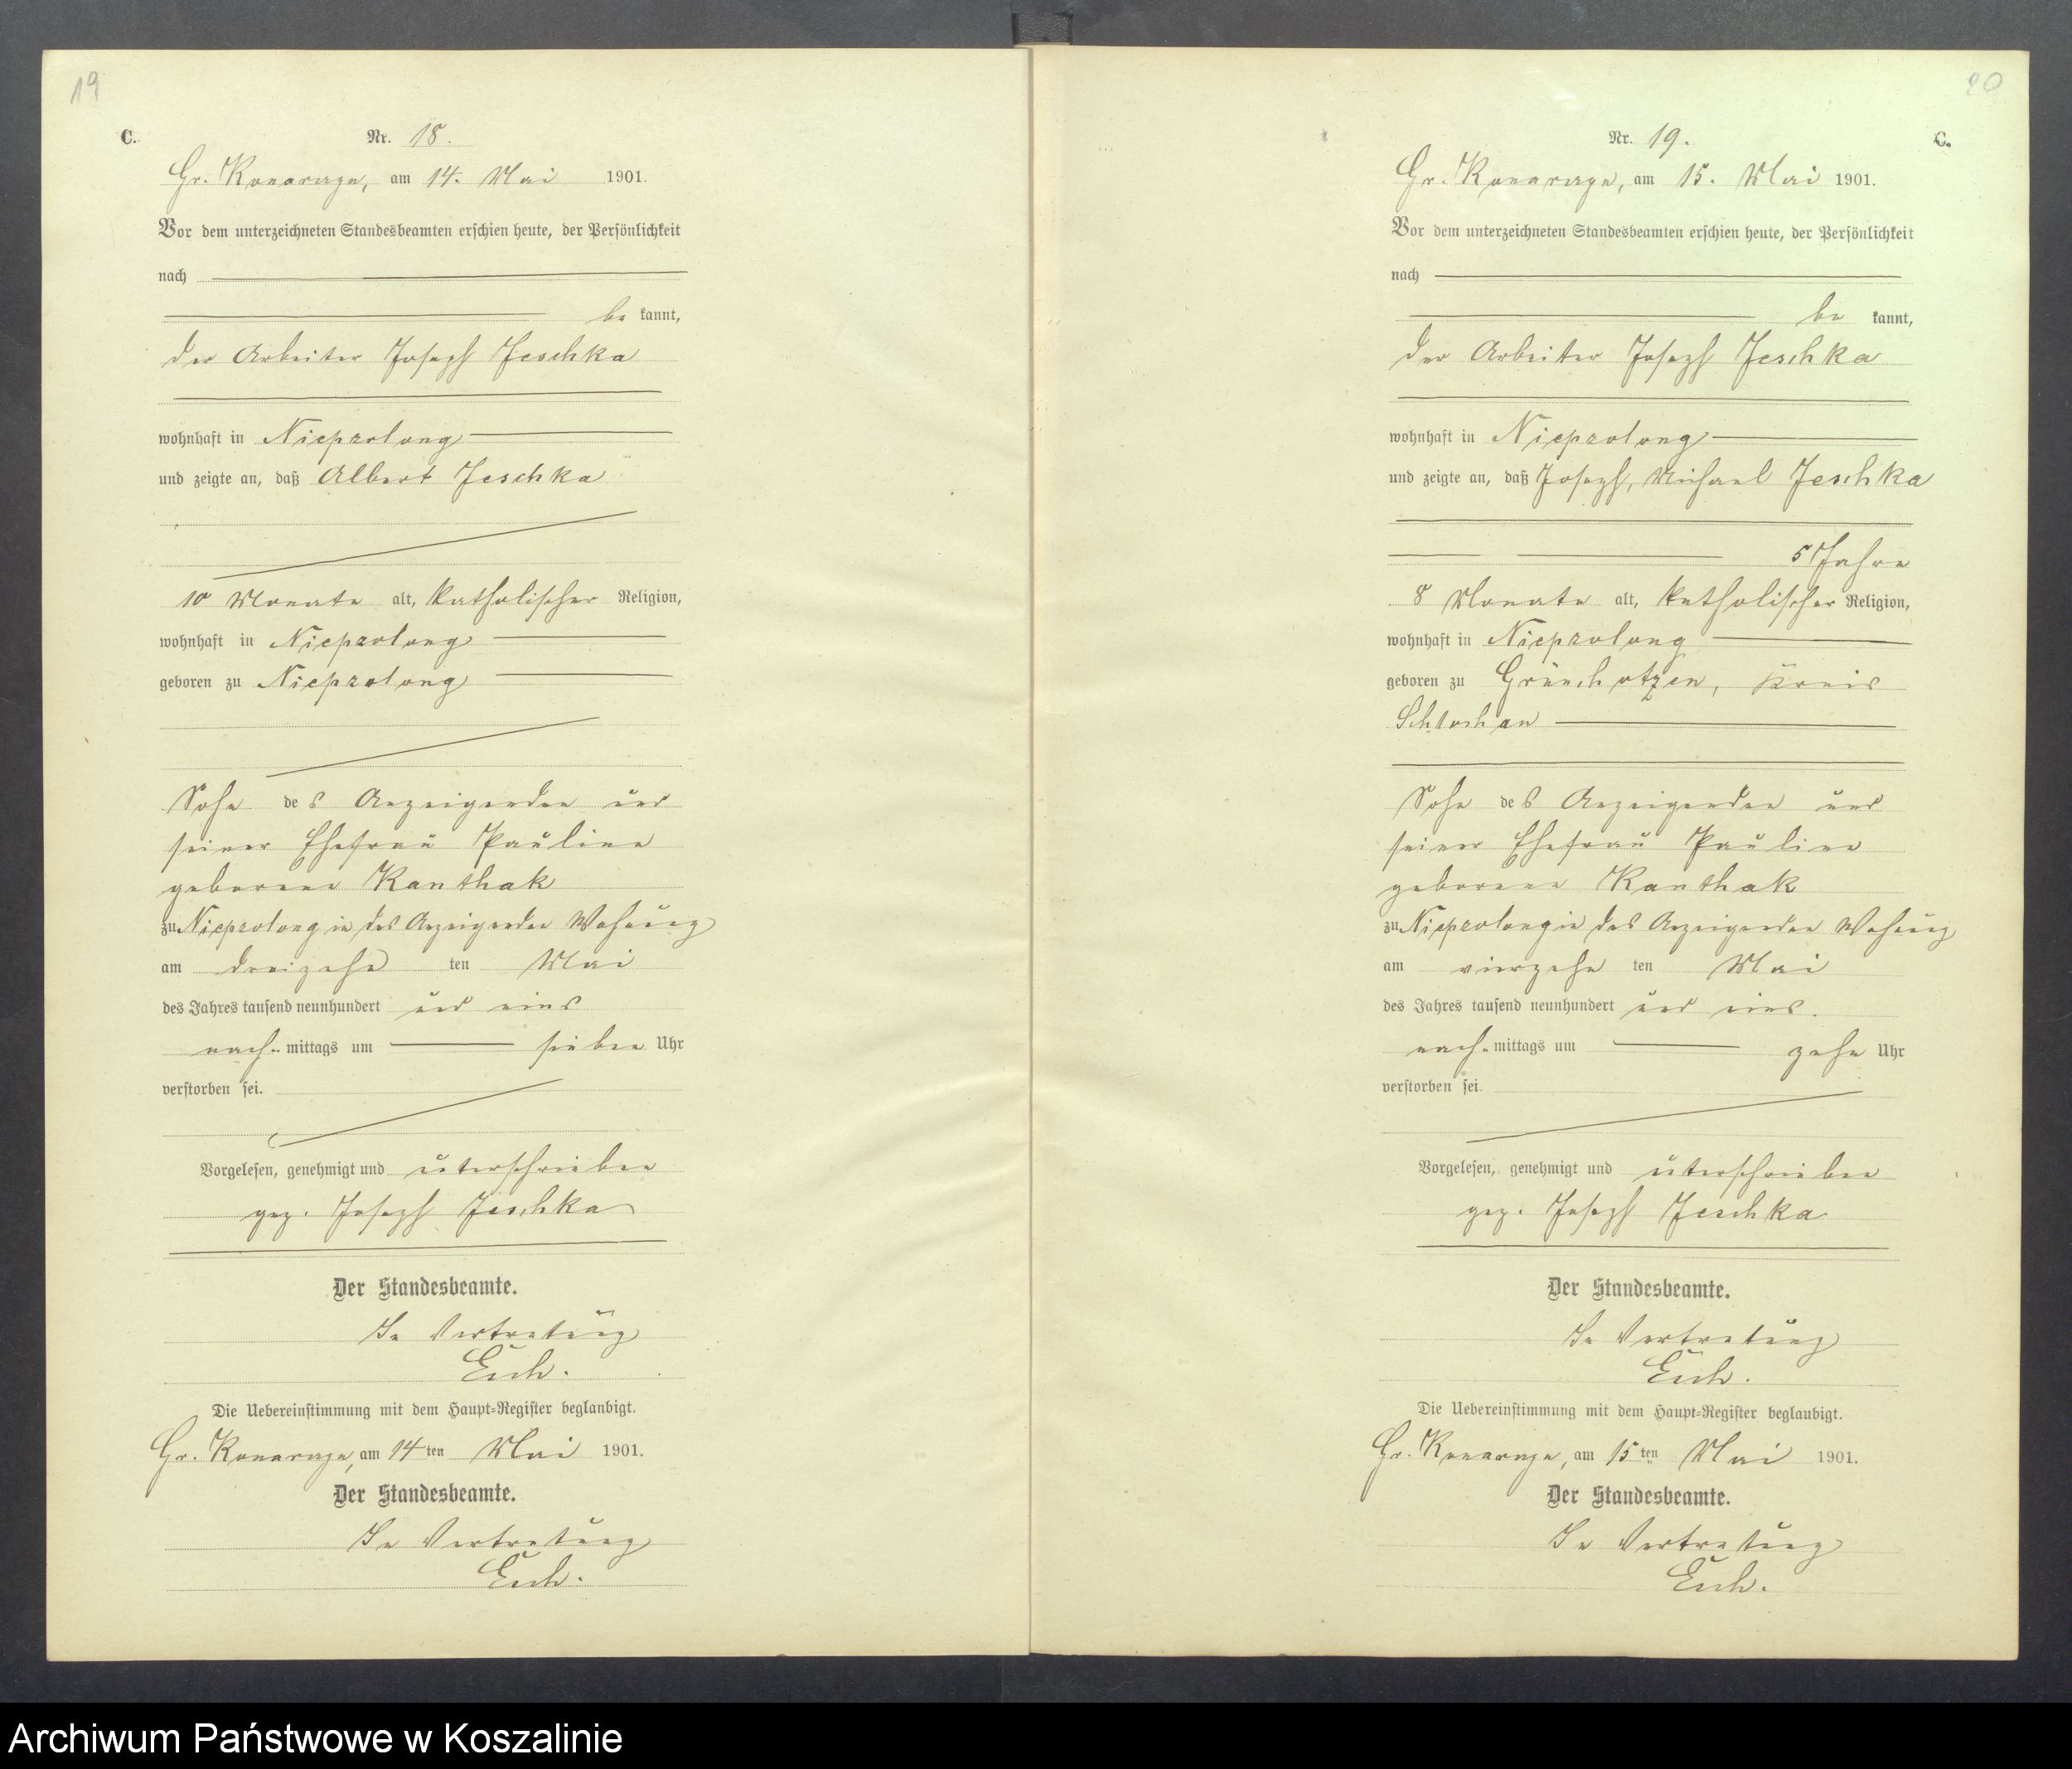 19
C.
Nr. 18.
Gr. Konarzyn, am 14. Mai 1901.
Vor dem unterzeichneten Standesbeamten erschien heute, der Persönlichkeit
nach
be kannt,
der Arbeiter Joseph Jeschka
wohnhaft in Niepzolong
und zeigte an, daß Albert Jeschka
10 Monate alt, katholischer Religion,
wohnhaft in Niepzolong
geboren zu Niepzolong
Sohn des Anzeigenden und
seiner Ehefrau Pauline
geborene Kanthak
zu Niepzolong in des Anzeigenden Wohnung
am dreizehn ten Mai
des Jahres tausend neunhundert und eins
nach- mittags um sieben Uhr
verstorben sei.
Vorgelesen, genehmigt und unterschrieben
gez. Joseph Jeschka
Der Standesbeamte.
In Vertretung
Eich.
Die Uebereinstimmung mit dem Haupt-Register beglaubigt.
Gr. Konarzyn, am 14ten Mai 1901.
Der Standesbeamte.
In Vertretung
Eich.
20
Nr. 19.
C.
Gr. Konarzyn, am 15. Mai 1901.
Vor dem unterzeichneten Standesbeamten erschien heute, der Persönlichkeit
nach
be kannt,
der Arbeiter Joseph Jeschka
wohnhaft in Niepzolong
und zeigte an, daß Joseph, Michael Jeschka
5 Jahre
8 Monate alt, katholischer Religion,
wohnhaft in Niepzolong
geboren zu Grünchotzen, Kreis
Schlochau
Sohn des Anzeigenden und
seiner Ehefrau Pauline
geborene Kanthak
zu Niepzolong in des Anzeigenden Wohnung
am vierzehn ten Mai
des Jahres tausend neunhundert und eins.
nach- mittags um zehn Uhr
verstorben sei.
Vorgelesen, genehmigt und unterschrieben
gez. Joseph Jeschka
Der Standesbeamte.
In Vertretung
Eich.
Die Uebereinstimmung mit dem Haupt-Register beglaubigt.
Gr. Konarzyn, am 15ten Mai 1901.
Der Standesbeamte.
In Vertretung
Eich.
Archiwum Państwowe w Koszalinie